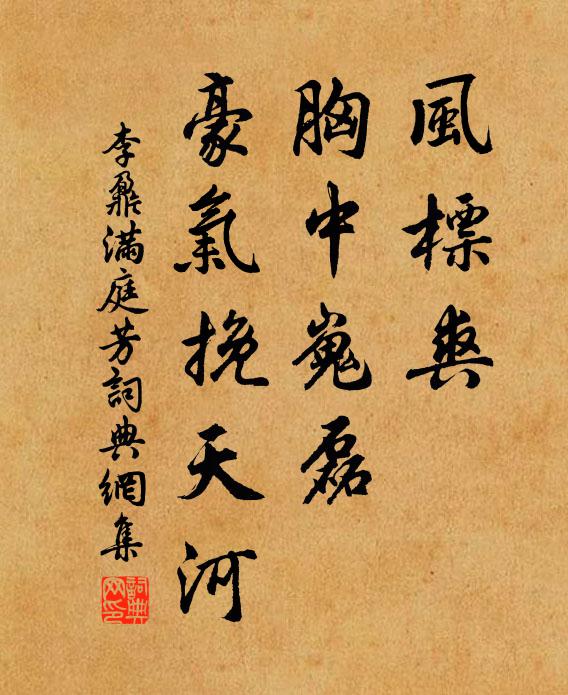 風標爽
胸中嵬磊
豪氣挽天河
李鼐滿庭芳詞典網集
詞典網印